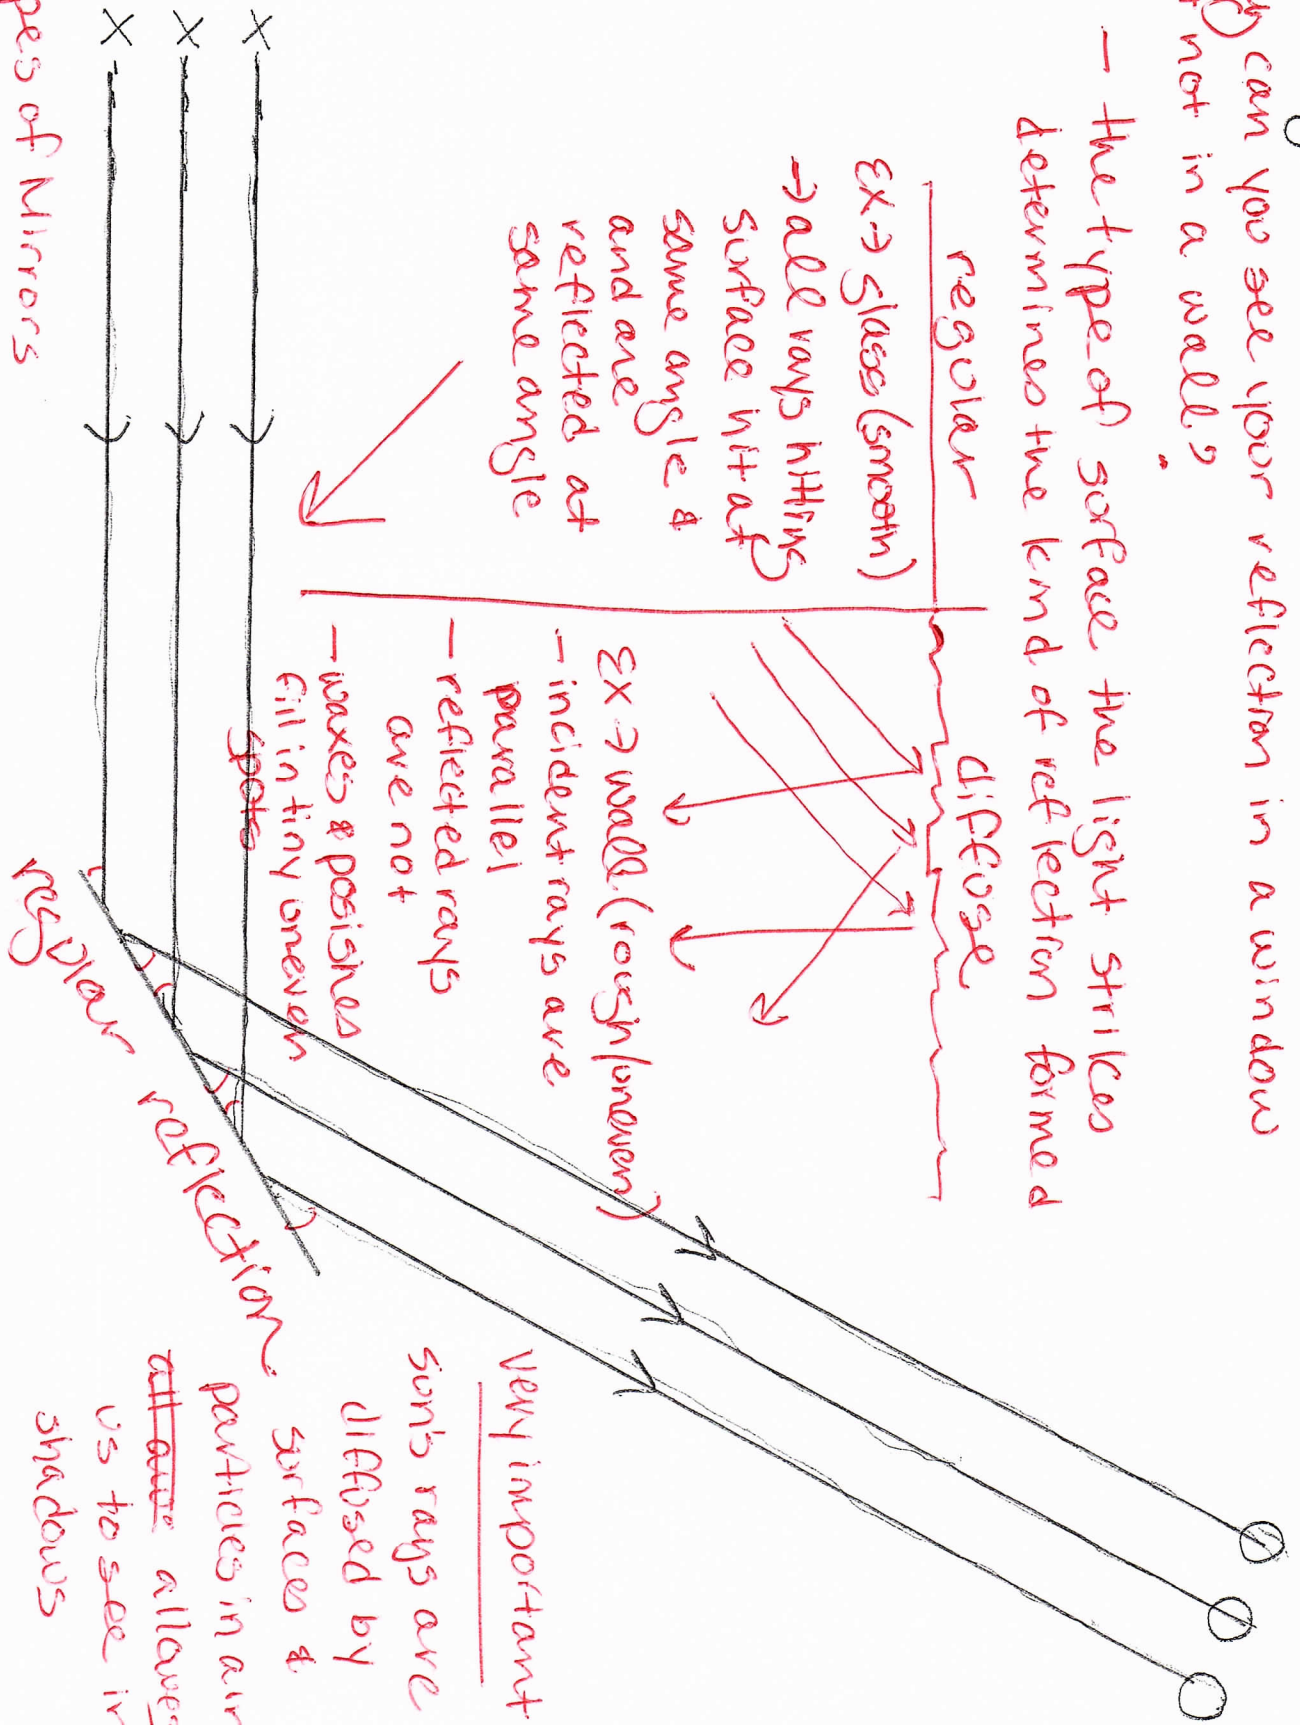 can you see your reflection in a window
not in a wall?
- the type of surface the light strikes
determines the kind of reflection formed
regular
Ex → glass (smooth)
→ all rays hitting
surface hit at
same angle &
and are
reflected at
same angle
diffuse
Ex → wall (rough/uneven)
- incident rays are
parallel
- reflected rays
are not
- waxes & posishes
fill in tiny uneven
spots
X
X
X
regular reflection
very important
sun's rays are
diffused by
surfaces &
particles in air
allows
us to see in
shadows
pes of Mirrors